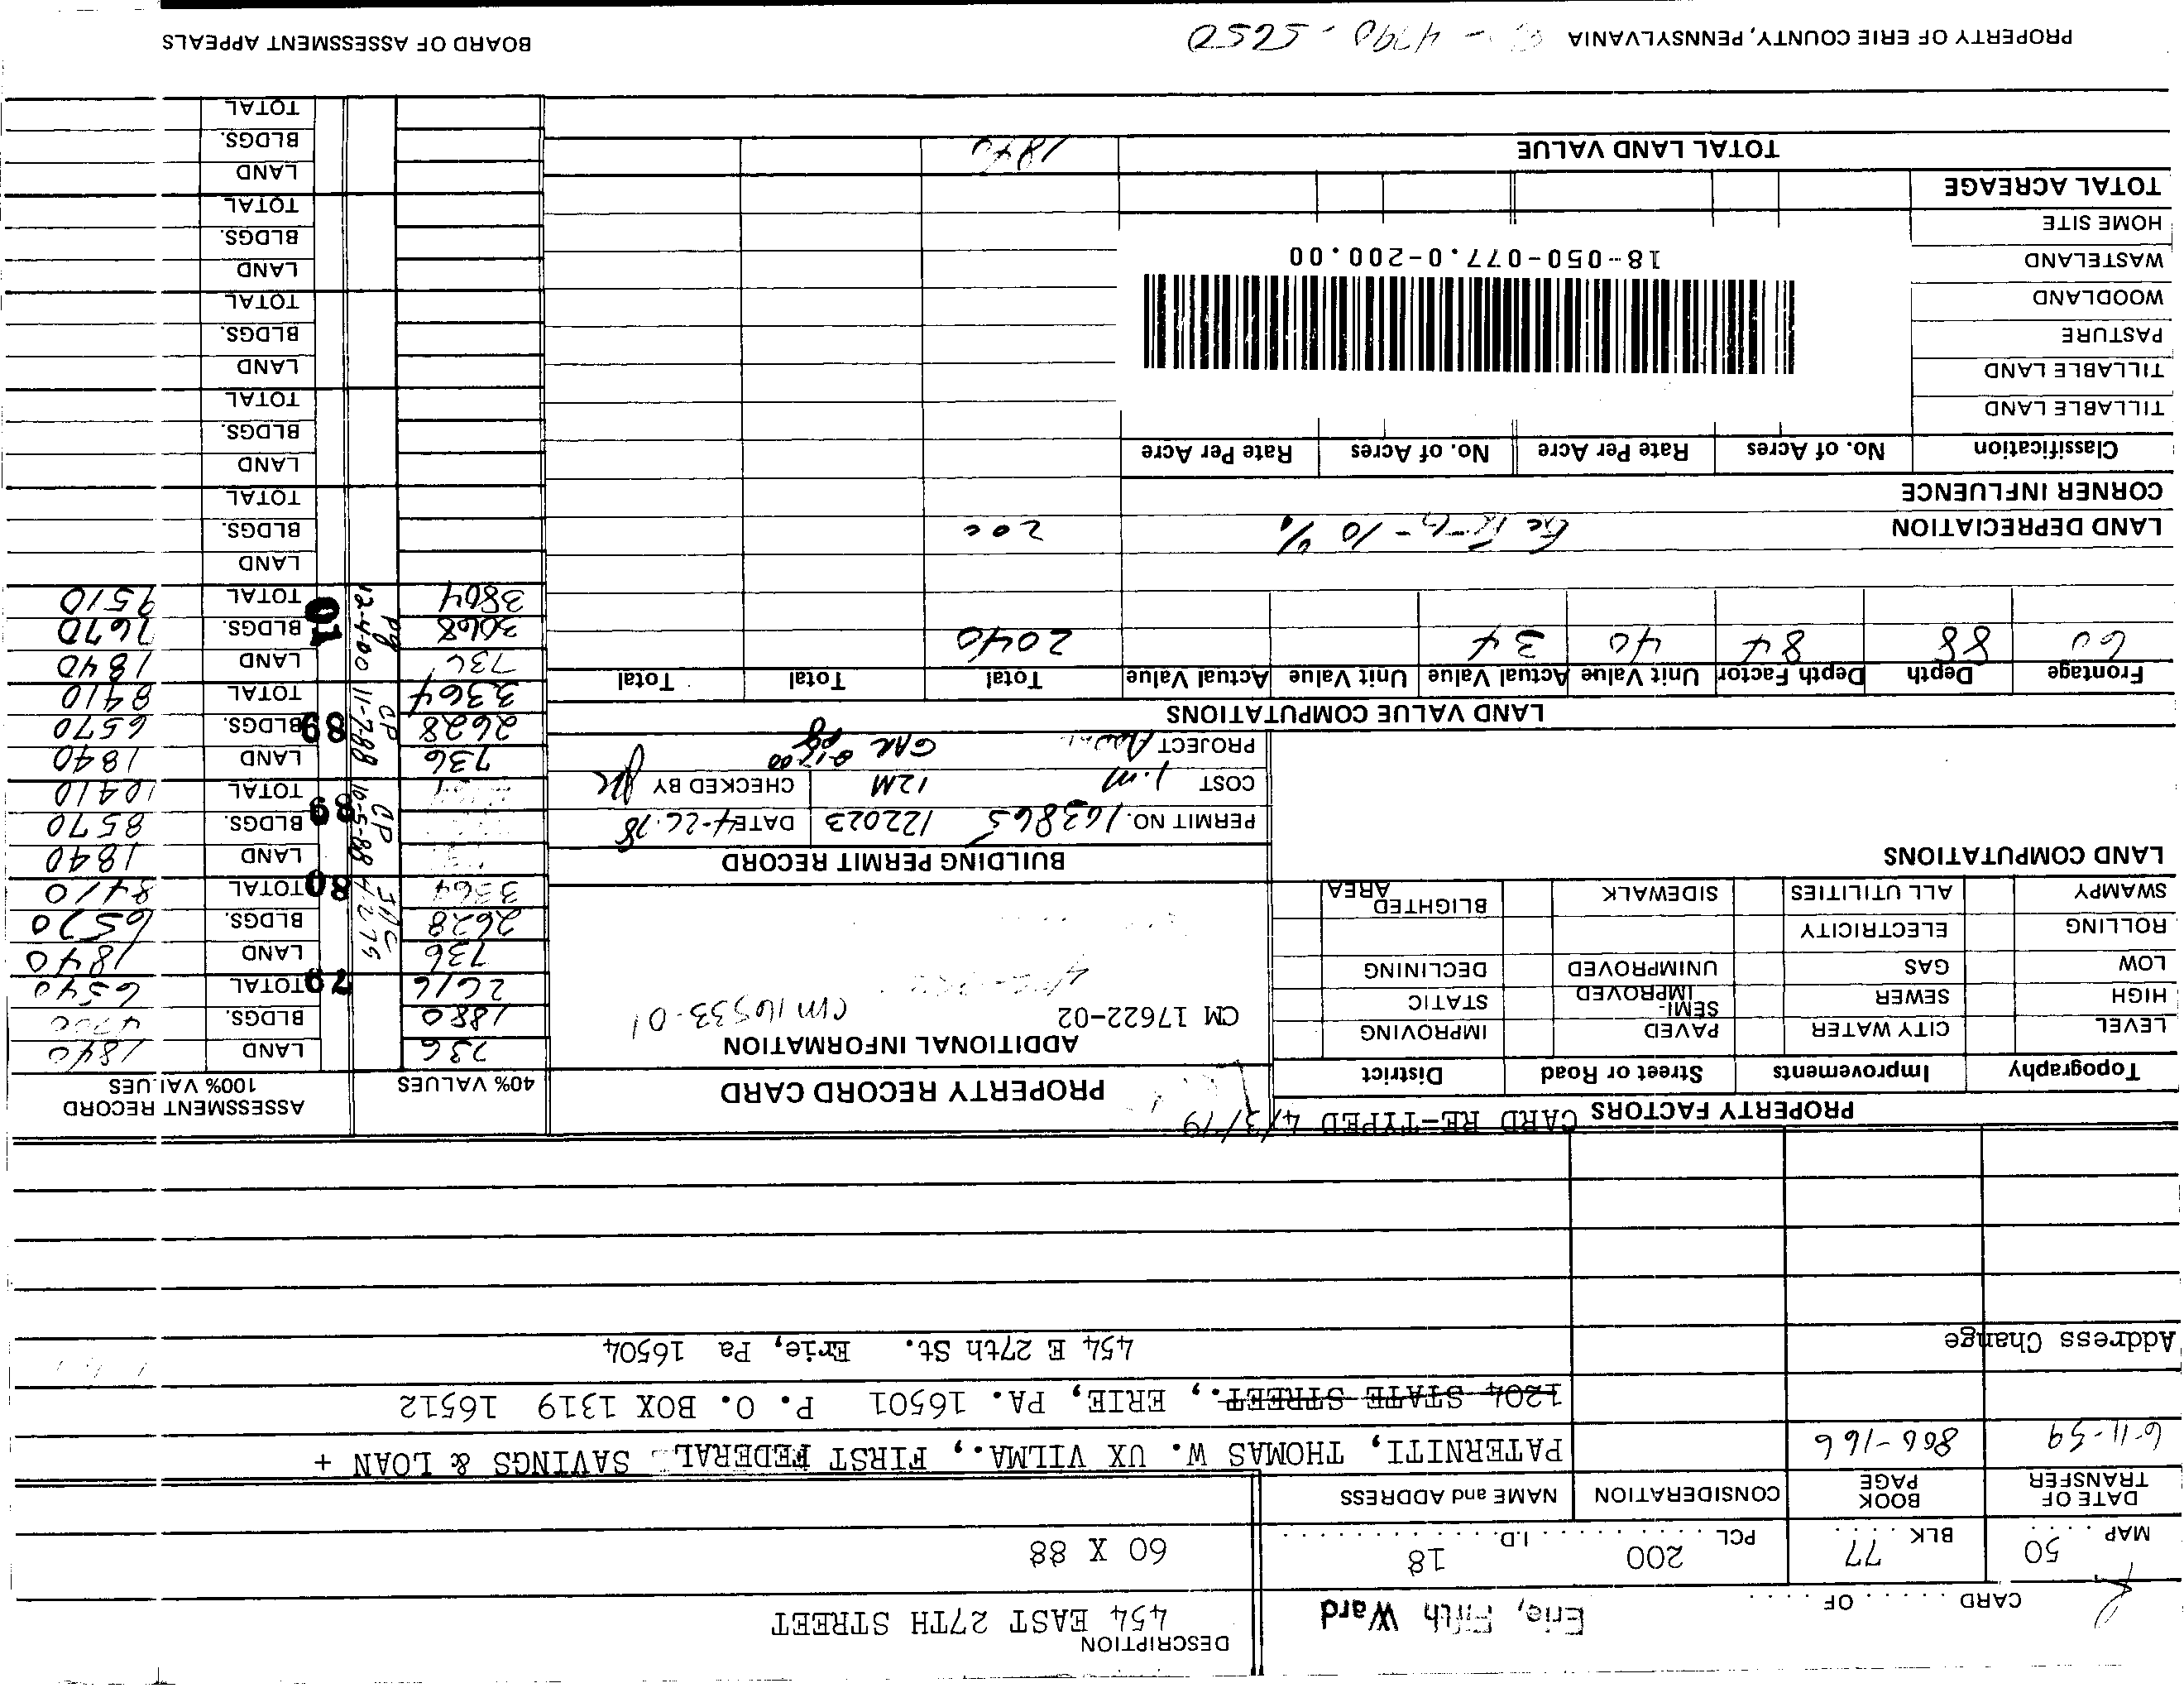 DESCRIPTION
CARD . . . . . . OF . . . . . Erie, Fifth Ward 454 EAST 27TH STREET
MAP . . 50 BLK . 77 PCL . 200 I.D. 18 60 X 88
DATE OF TRANSFER BOOK PAGE CONSIDERATION NAME and ADDRESS
6-11-59 806-166 PATERNITI, THOMAS W. UX VILMA., FIRST FEDERAL SAVINGS & LOAN +
1204 STATE STREET., ERIE, PA. 16501 P. O. BOX 1319 16512
Address Change 454 E 27th St. Erie, Pa 16504
PROPERTY FACTORS CARD RE-TYPED 4/3/79
Topography Improvements Street or Road District
LEVEL CITY WATER PAVED IMPROVING
HIGH SEWER SEMI-IMPROVED STATIC
LOW GAS UNIMPROVED DECLINING
ROLLING ELECTRICITY
SWAMPY ALL UTILITIES SIDEWALK BLIGHTED AREA
LAND COMPUTATIONS
PROPERTY RECORD CARD
ADDITIONAL INFORMATION
CM 17622-02 CM 16533-01
BUILDING PERMIT RECORD
PERMIT NO. 163865 122023 DATE 4-26-78
COST 1.m 12M CHECKED BY
PROJECT GAR
LAND VALUE COMPUTATIONS
Frontage Depth Depth Factor Unit Value Actual Value Unit Value Actual Value Total Total Total
60 88 84 40 34 2040
LAND DEPRECIATION - 10 % 200
CORNER INFLUENCE
Classification No. of Acres Rate Per Acre No. of Acres Rate Per Acre
TILLABLE LAND
TILLABLE LAND
PASTURE
WOODLAND
WASTELAND
HOME SITE
18-050-077.0-200.00
TOTAL ACREAGE
TOTAL LAND VALUE 1840
40% VALUES ASSESSMENT RECORD 100% VALUES
736 LAND 1840
1880 BLDGS. 4700
2616 79 TOTAL 6540
736 LAND 1840
2628 BLDGS. 6570
3364 4-26-79 80 TOTAL 8410
LAND 1840
CP 10-5-88 89 BLDGS. 8570
TOTAL 10410
736 LAND 1840
2628 CP 11-7-88 89 BLDGS. 6570
3364 TOTAL 8410
736 LAND 1840
3068 pg 12-4-00 01 BLDGS. 7670
3804 TOTAL 9510
LAND
BLDGS.
TOTAL
LAND
BLDGS.
TOTAL
LAND
BLDGS.
TOTAL
LAND
BLDGS.
TOTAL
LAND
BLDGS.
TOTAL
PROPERTY OF ERIE COUNTY, PENNSYLVANIA - 4790 - 5650 BOARD OF ASSESSMENT APPEALS